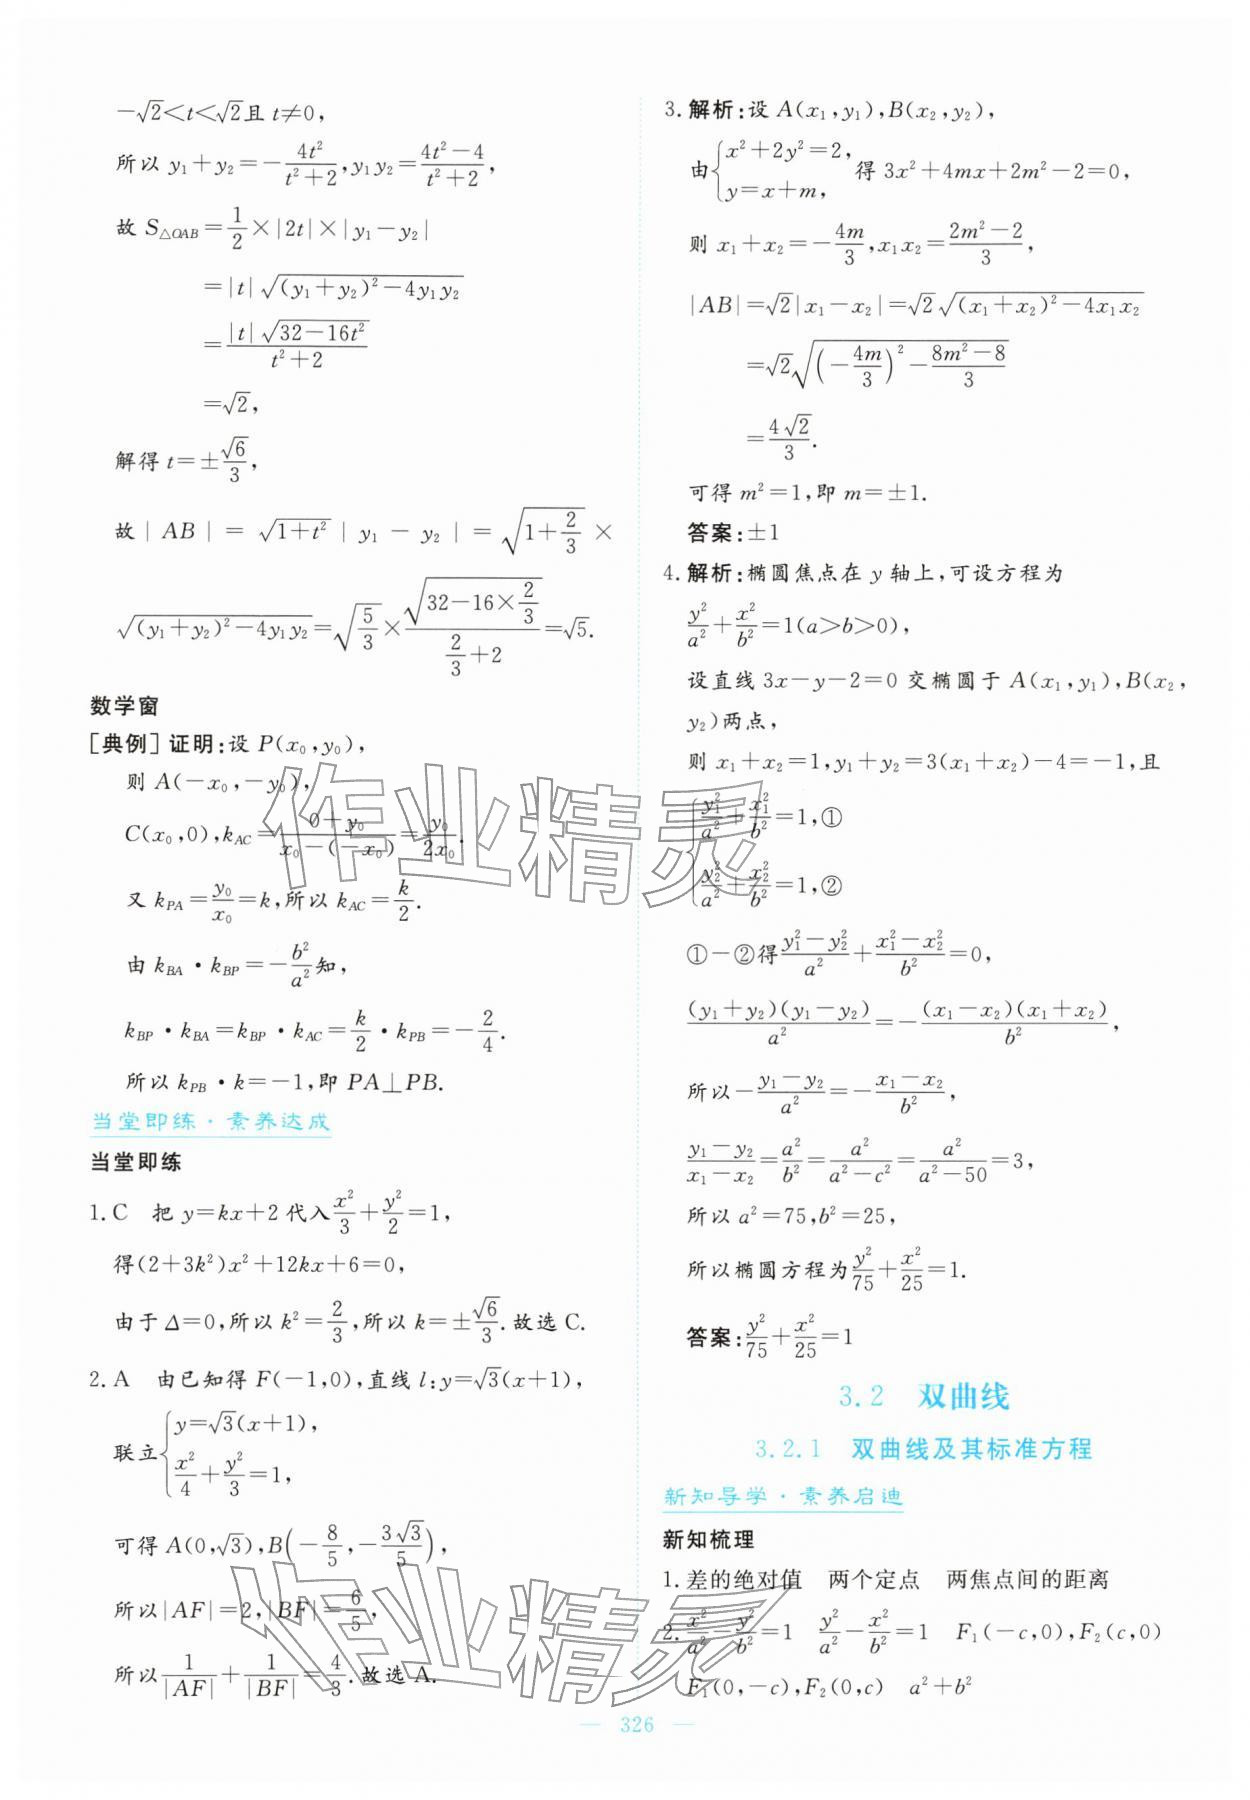 -√2<t<√2且 t≠0,
所以 y₁+y₂=-4t²/(t²+2),y₁y₂=(4t²-4)/(t²+2),
故 S△OAB=1/2×|2t|×|y₁-y₂|
=|t|√((y₁+y₂)²-4y₁y₂)
=|t|√(32-16t²)/(t²+2)
=√2,
解得 t=±√6/3,
故|AB|=√(1+t²)|y₁-y₂|=√(1+2/3)×
√((y₁+y₂)²-4y₁y₂)=√(5/3)×√(32-16×2/3)/(2/3+2)=√5.
数学窗
[典例] 证明:设 P(x₀,y₀),
则 A(-x₀,-y₀),
C(x₀,0),k_AC=(0+y₀)/(x₀-(-x₀))=y₀/(2x₀).
又 k_PA=y₀/x₀=k,所以 k_AC=k/2.
由 k_BA·k_BP=-b²/a²知,
k_BP·k_BA=k_BP·k_AC=k/2·k_PB=-2/4.
所以 k_PB·k=-1,即 PA⊥PB.
当堂即练·素养达成
当堂即练
1.C 把 y=kx+2 代入 x²/3+y²/2=1,
得(2+3k²)x²+12kx+6=0,
由于 Δ=0,所以 k²=2/3,所以 k=±√6/3.故选 C.
2.A 由已知得 F(-1,0),直线 l:y=√3(x+1),
联立{y=√3(x+1),
x²/4+y²/3=1,
可得 A(0,√3),B(-8/5,-3√3/5),
所以|AF|=2,|BF|=6/5,
所以 1/|AF|+1/|BF|=4/3.故选 A.
3.解析:设 A(x₁,y₁),B(x₂,y₂),
由{x²+2y²=2,
y=x+m, 得 3x²+4mx+2m²-2=0,
则 x₁+x₂=-4m/3,x₁x₂=(2m²-2)/3,
|AB|=√2|x₁-x₂|=√2√((x₁+x₂)²-4x₁x₂)
=√2√((-4m/3)²-(8m²-8)/3)
=4√2/3.
可得 m²=1,即 m=±1.
答案:±1
4.解析:椭圆焦点在 y 轴上,可设方程为
y²/a²+x²/b²=1(a>b>0),
设直线 3x-y-2=0 交椭圆于 A(x₁,y₁),B(x₂,
y₂)两点,
则 x₁+x₂=1,y₁+y₂=3(x₁+x₂)-4=-1,且
{y₁²/a²+x₁²/b²=1,①
y₂²/a²+x₂²/b²=1,②
①-②得(y₁²-y₂²)/a²+(x₁²-x₂²)/b²=0,
(y₁+y₂)(y₁-y₂)/a²=-(x₁-x₂)(x₁+x₂)/b²,
所以-(y₁-y₂)/a²=-(x₁-x₂)/b²,
(y₁-y₂)/(x₁-x₂)=a²/b²=a²/(a²-c²)=a²/(a²-50)=3,
所以 a²=75,b²=25,
所以椭圆方程为 y²/75+x²/25=1.
答案:y²/75+x²/25=1
3.2 双曲线
3.2.1 双曲线及其标准方程
新知导学·素养启迪
新知梳理
1.差的绝对值 两个定点 两焦点间的距离
2.x²/a²-y²/b²=1 y²/a²-x²/b²=1 F₁(-c,0),F₂(c,0)
F₁(0,-c),F₂(0,c) a²+b²
— 326 —
作业精灵
作业精灵